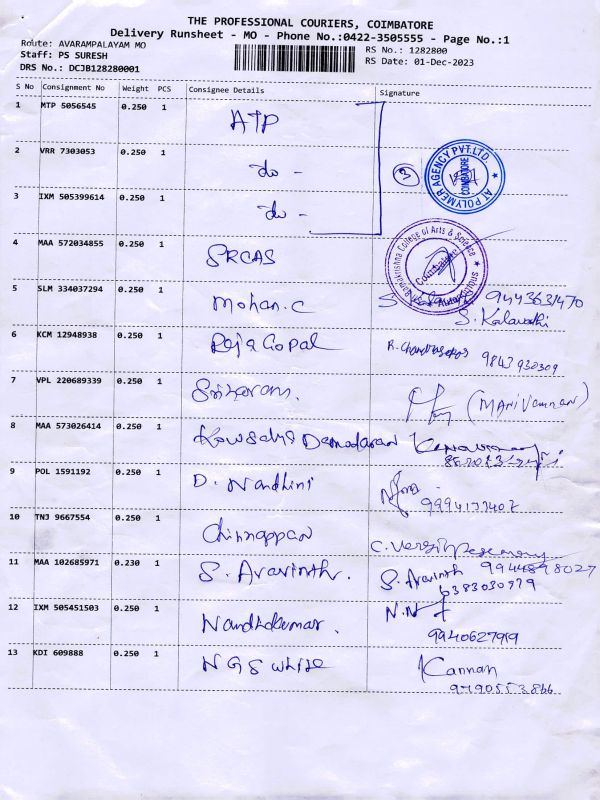 THE PROFESSIONAL COURIERS, COIMBATORE
Delivery Runsheet - MO - Phone No.:0422-3505555 - Page No.:1
Route: AVARAMPALAYAM MO
RS No.: 1282800
Staff: PS SURESH
RS Date: 01-Dec-2023
DRS No.: DCJB128280001
S No Consignment No Weight PCS Consignee Details Signature
1 MTP 5056545 0.250 1 ATP
2 VRR 7303053 0.250 1 do - 3
AT POLYMER AGENCY PVT.LTD. COIMBATORE
3 IXM 505399614 0.250 1 do -
4 MAA 572034855 0.250 1 SRCAS
Ramakrishna College of Arts & Science Coimbatore
5 SLM 334037294 0.250 1 Mohan.C 9443631470
S. Kalavathi
6 KCM 12948938 0.250 1 Raja Gopal R. Chandrasekar 9843930309
7 VPL 220689339 0.250 1 Sriharam. (MANIVANNAN)
8 MAA 573026414 0.250 1 Kowsalya Damodaran
9 POL 1591192 0.250 1 D. Nandhini
9994177402
10 TNJ 9667554 0.250 1 Chinnappan
9944898027
11 MAA 102685971 0.230 1 S. Aravinth. S. Aravinth
6383030979
12 IXM 505451503 0.250 1 Nandhakumar. N.N
9940627919
13 KDI 609888 0.250 1 NGS White Kannan
9790553866